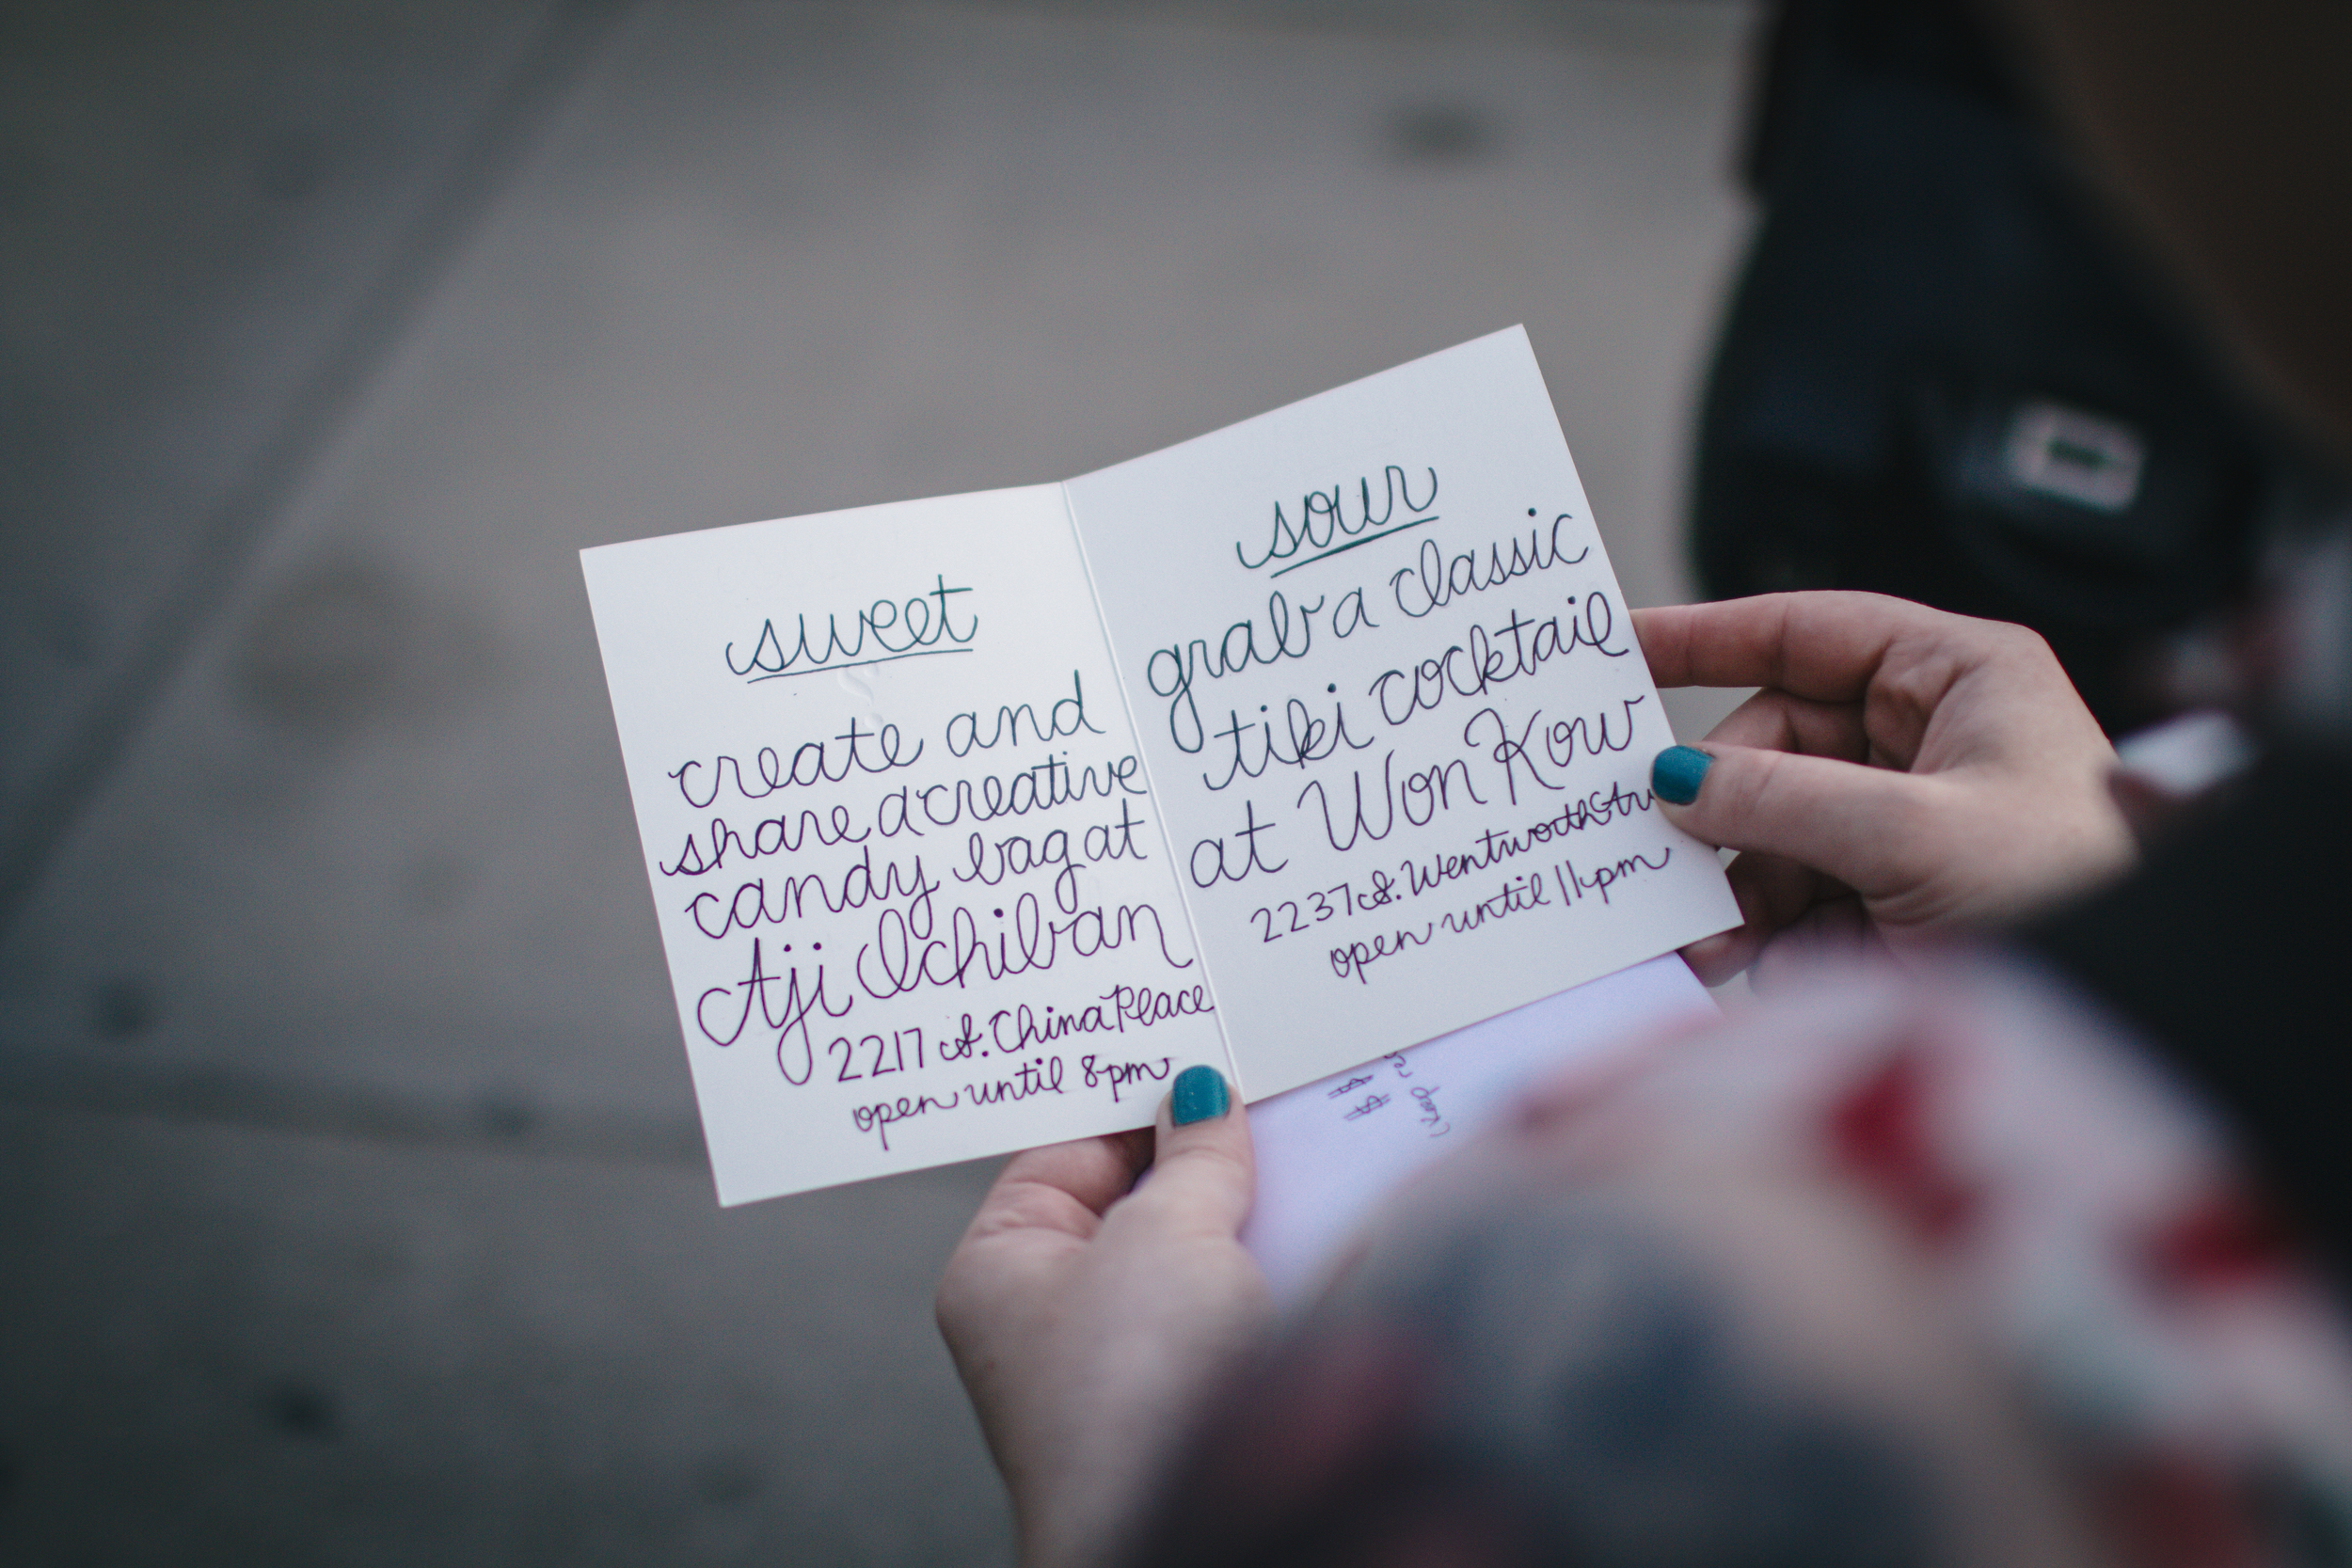 sweet
create and
share a creative
candy bag at
Aji Ichiban
2217 S. China Place
open until 8pm
sour
grab a classic
tiki cocktail
at Won Kow
2237 S. Wentworth
open until 11pm
$$
(keep